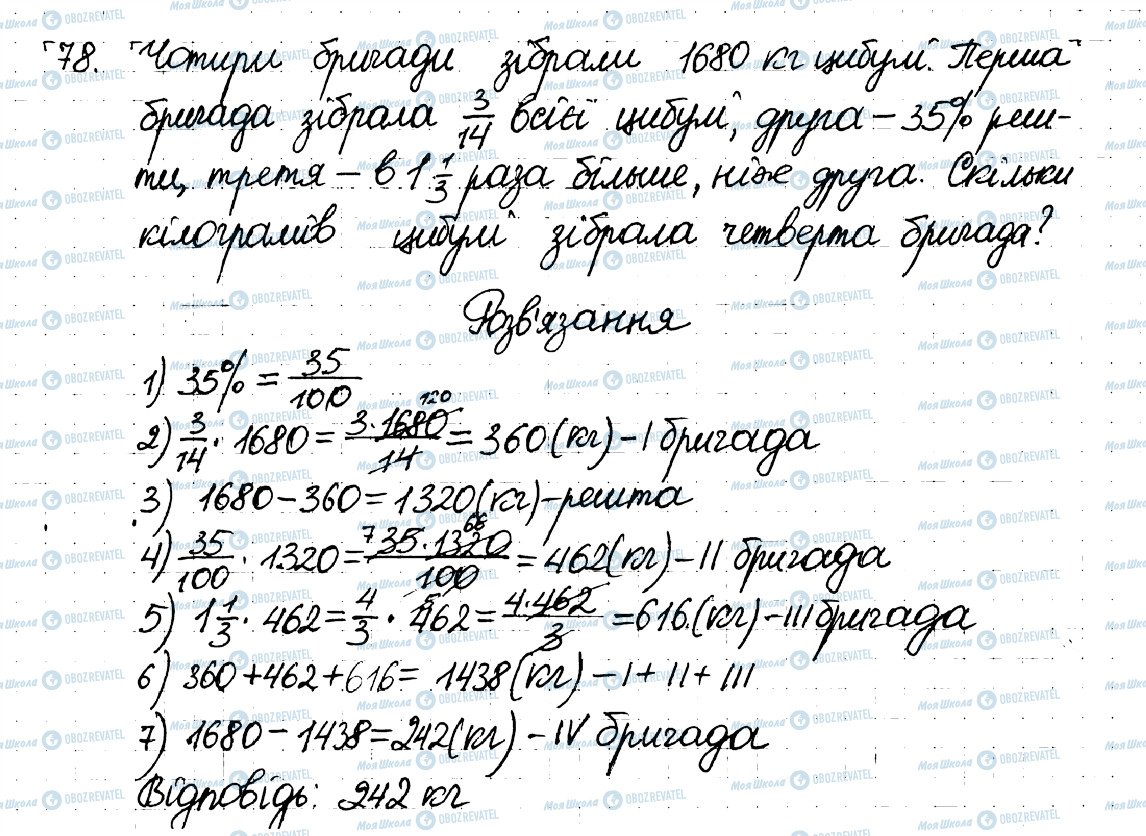 78. Чотири бригади зібрали 1680 кг цибулі. Перша
бригада зібрала 3/14 всієї цибулі, друга – 35% реш-
ти, третя – в 1 1/3 раза більше, ніж друга. Скільки
кілограмів цибулі зібрала четверта бригада?
Розв'язання
1) 35% = 35/100
2) 3/14 · 1680 = 3·1680/14 = 360 (кг) – I бригада
3) 1680 – 360 = 1320 (кг) – решта
4) 35/100 · 1320 = 35·1320/100 = 462 (кг) – II бригада
5) 1 1/3 · 462 = 4/3 · 462 = 4·462/3 = 616 (кг) – III бригада
6) 360 + 462 + 616 = 1438 (кг) – I + II + III
7) 1680 – 1438 = 242 (кг) – IV бригада
Відповідь: 242 кг